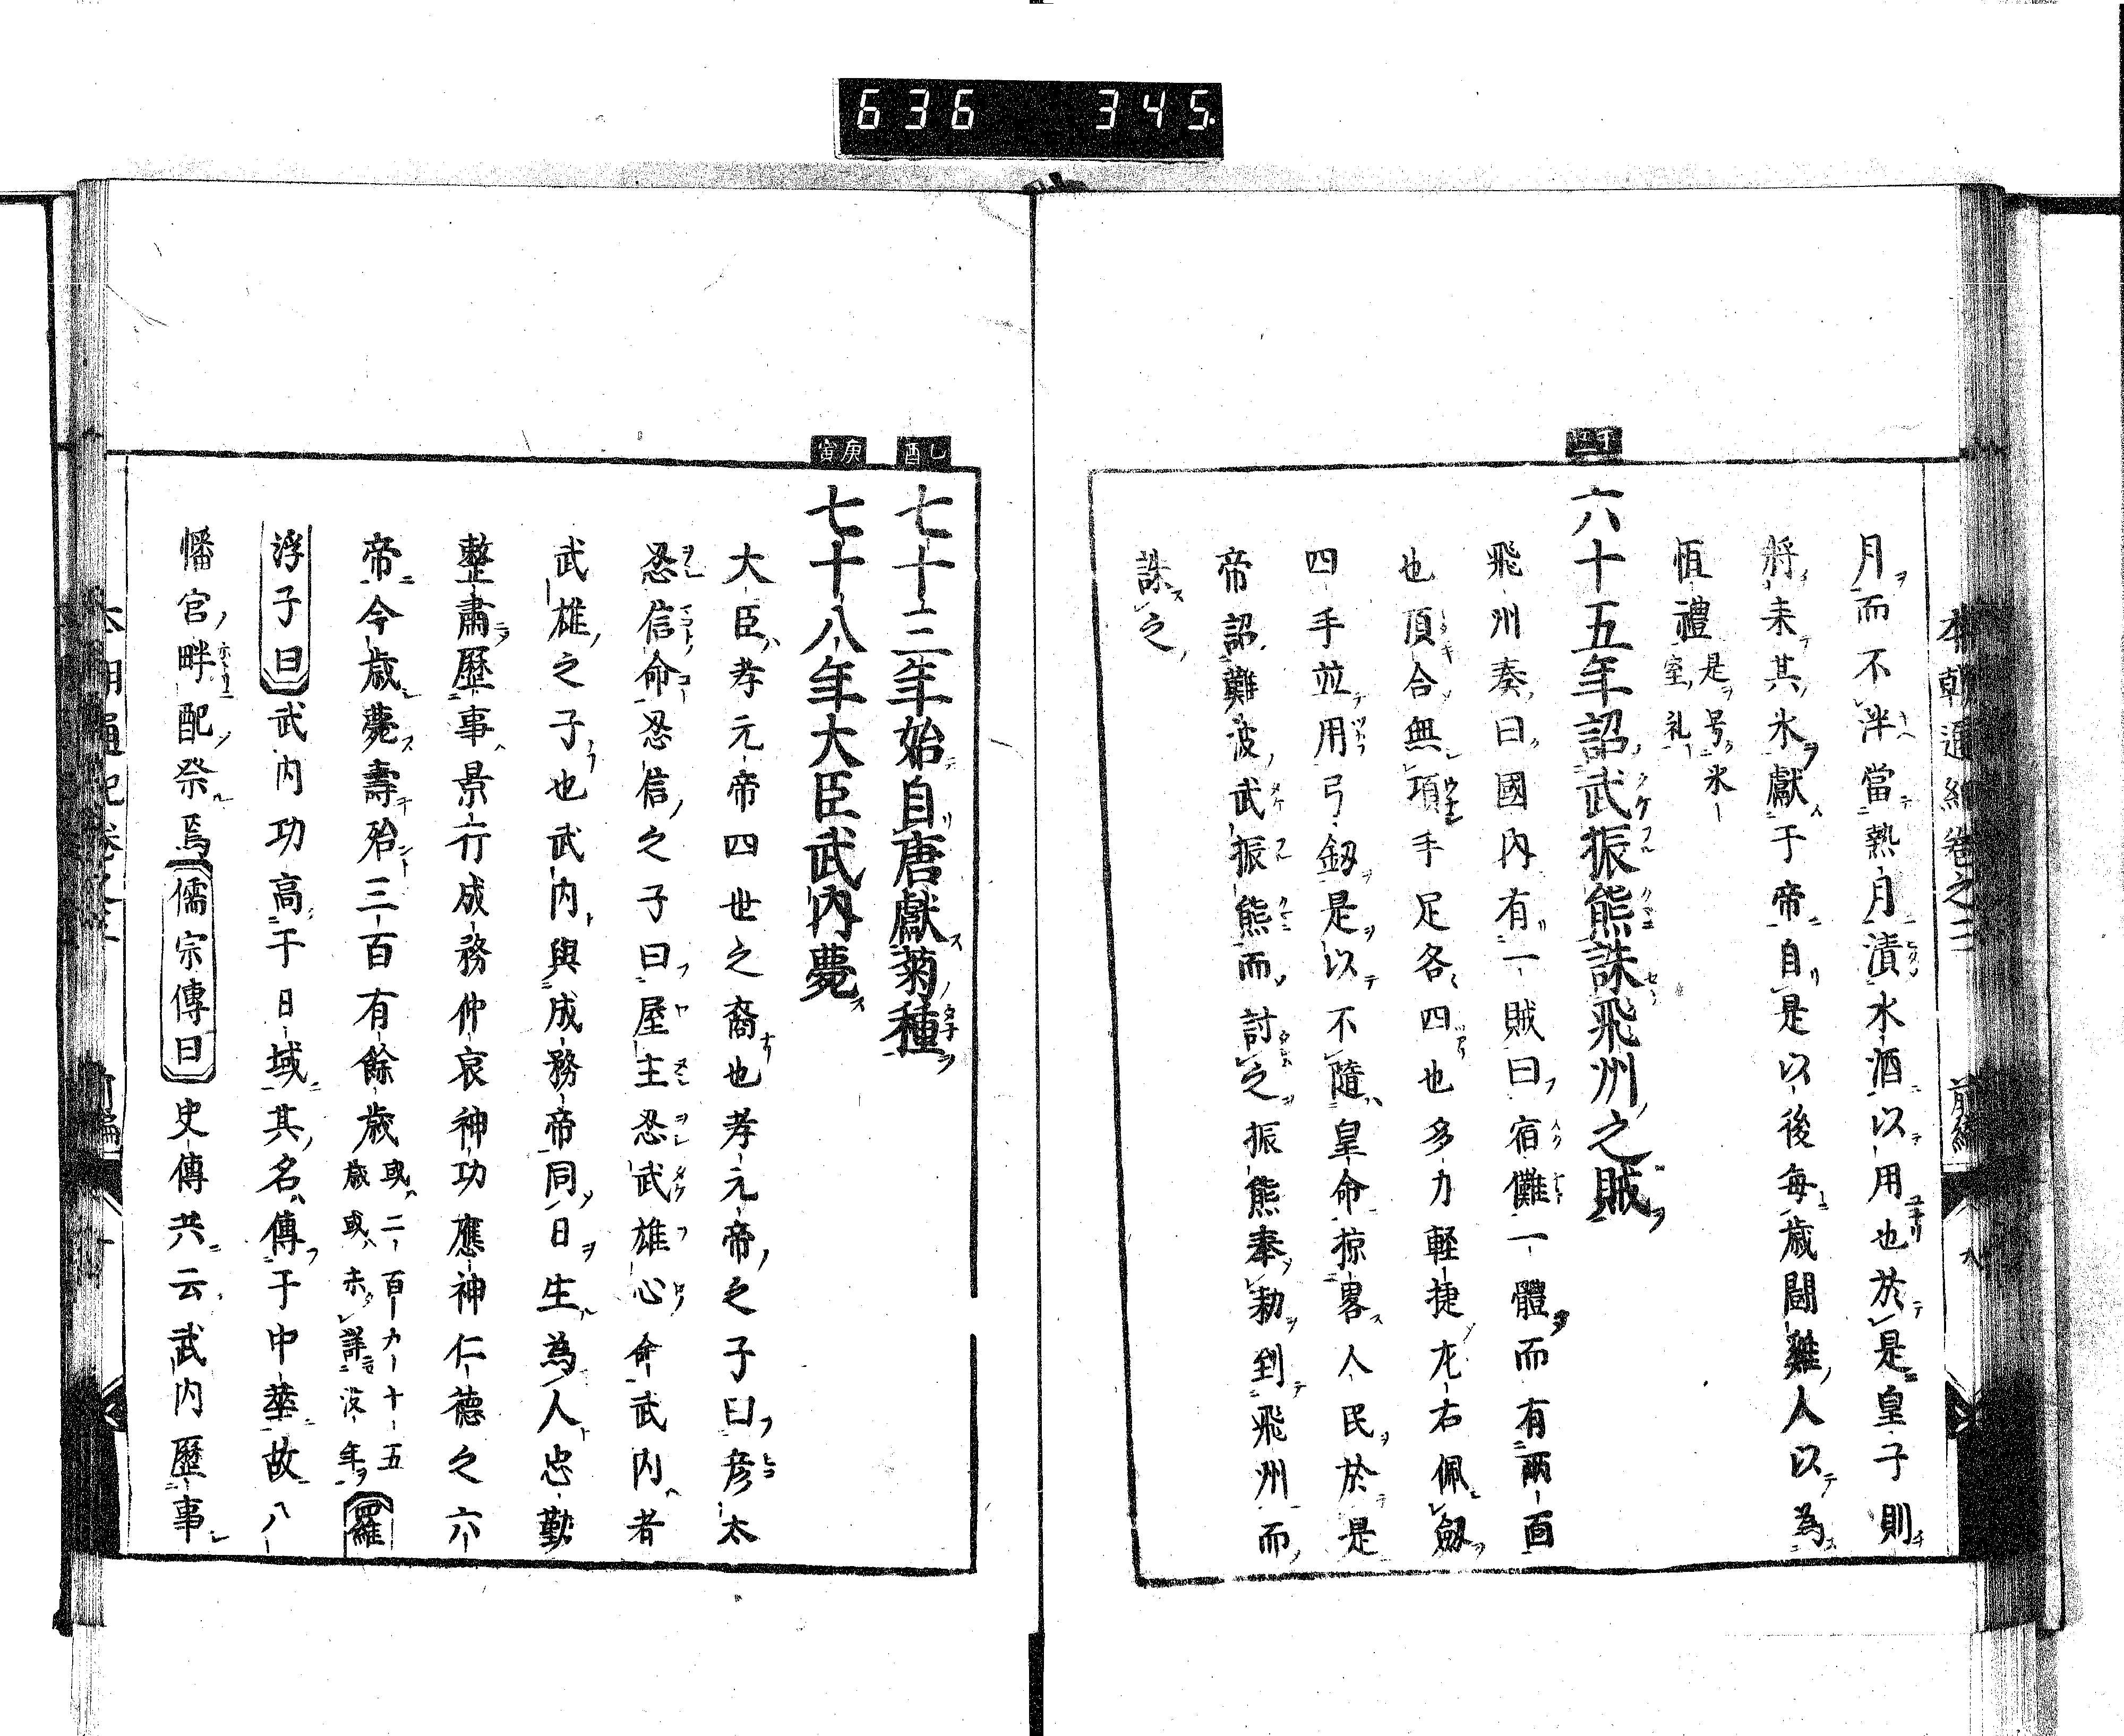 636 345.
本朝通紀卷之三 前編 八
月而不泮當熱月漬水酒以用也於是皇子則
將来其氷獻于帝自是以後毎歳闘雞人以為
恆禮 是号氷室礼
六十五年詔武振熊誅飛州之賊
飛州奏曰國内有一賊曰宿儺一體而有兩面
也頂合無項手足各四也多力軽捷左右佩劔
四手並用弓釼是以不隨皇命掠畧人民於是
帝詔難波武振熊而討之振熊奉勅到飛州而
誅之
乙酉
七十三年始自唐獻菊種
庚寅
七十八年大臣武内薨
大臣孝元帝四世之裔也孝元帝之子曰彦太
忍信命忍信之子曰屋主忍武雄心命武内者
武雄之子也武内與成務帝同日生為人忠勤
整肅歷事景行成務仲哀神功應神仁德之六
帝今歳薨壽殆三百有餘歳 或二百九十五歳或未詳没年 羅
浮子曰武内功高于日域其名傳于中華故八
幡宮畔配祭焉儒宗傳曰史傳共云武内歷事